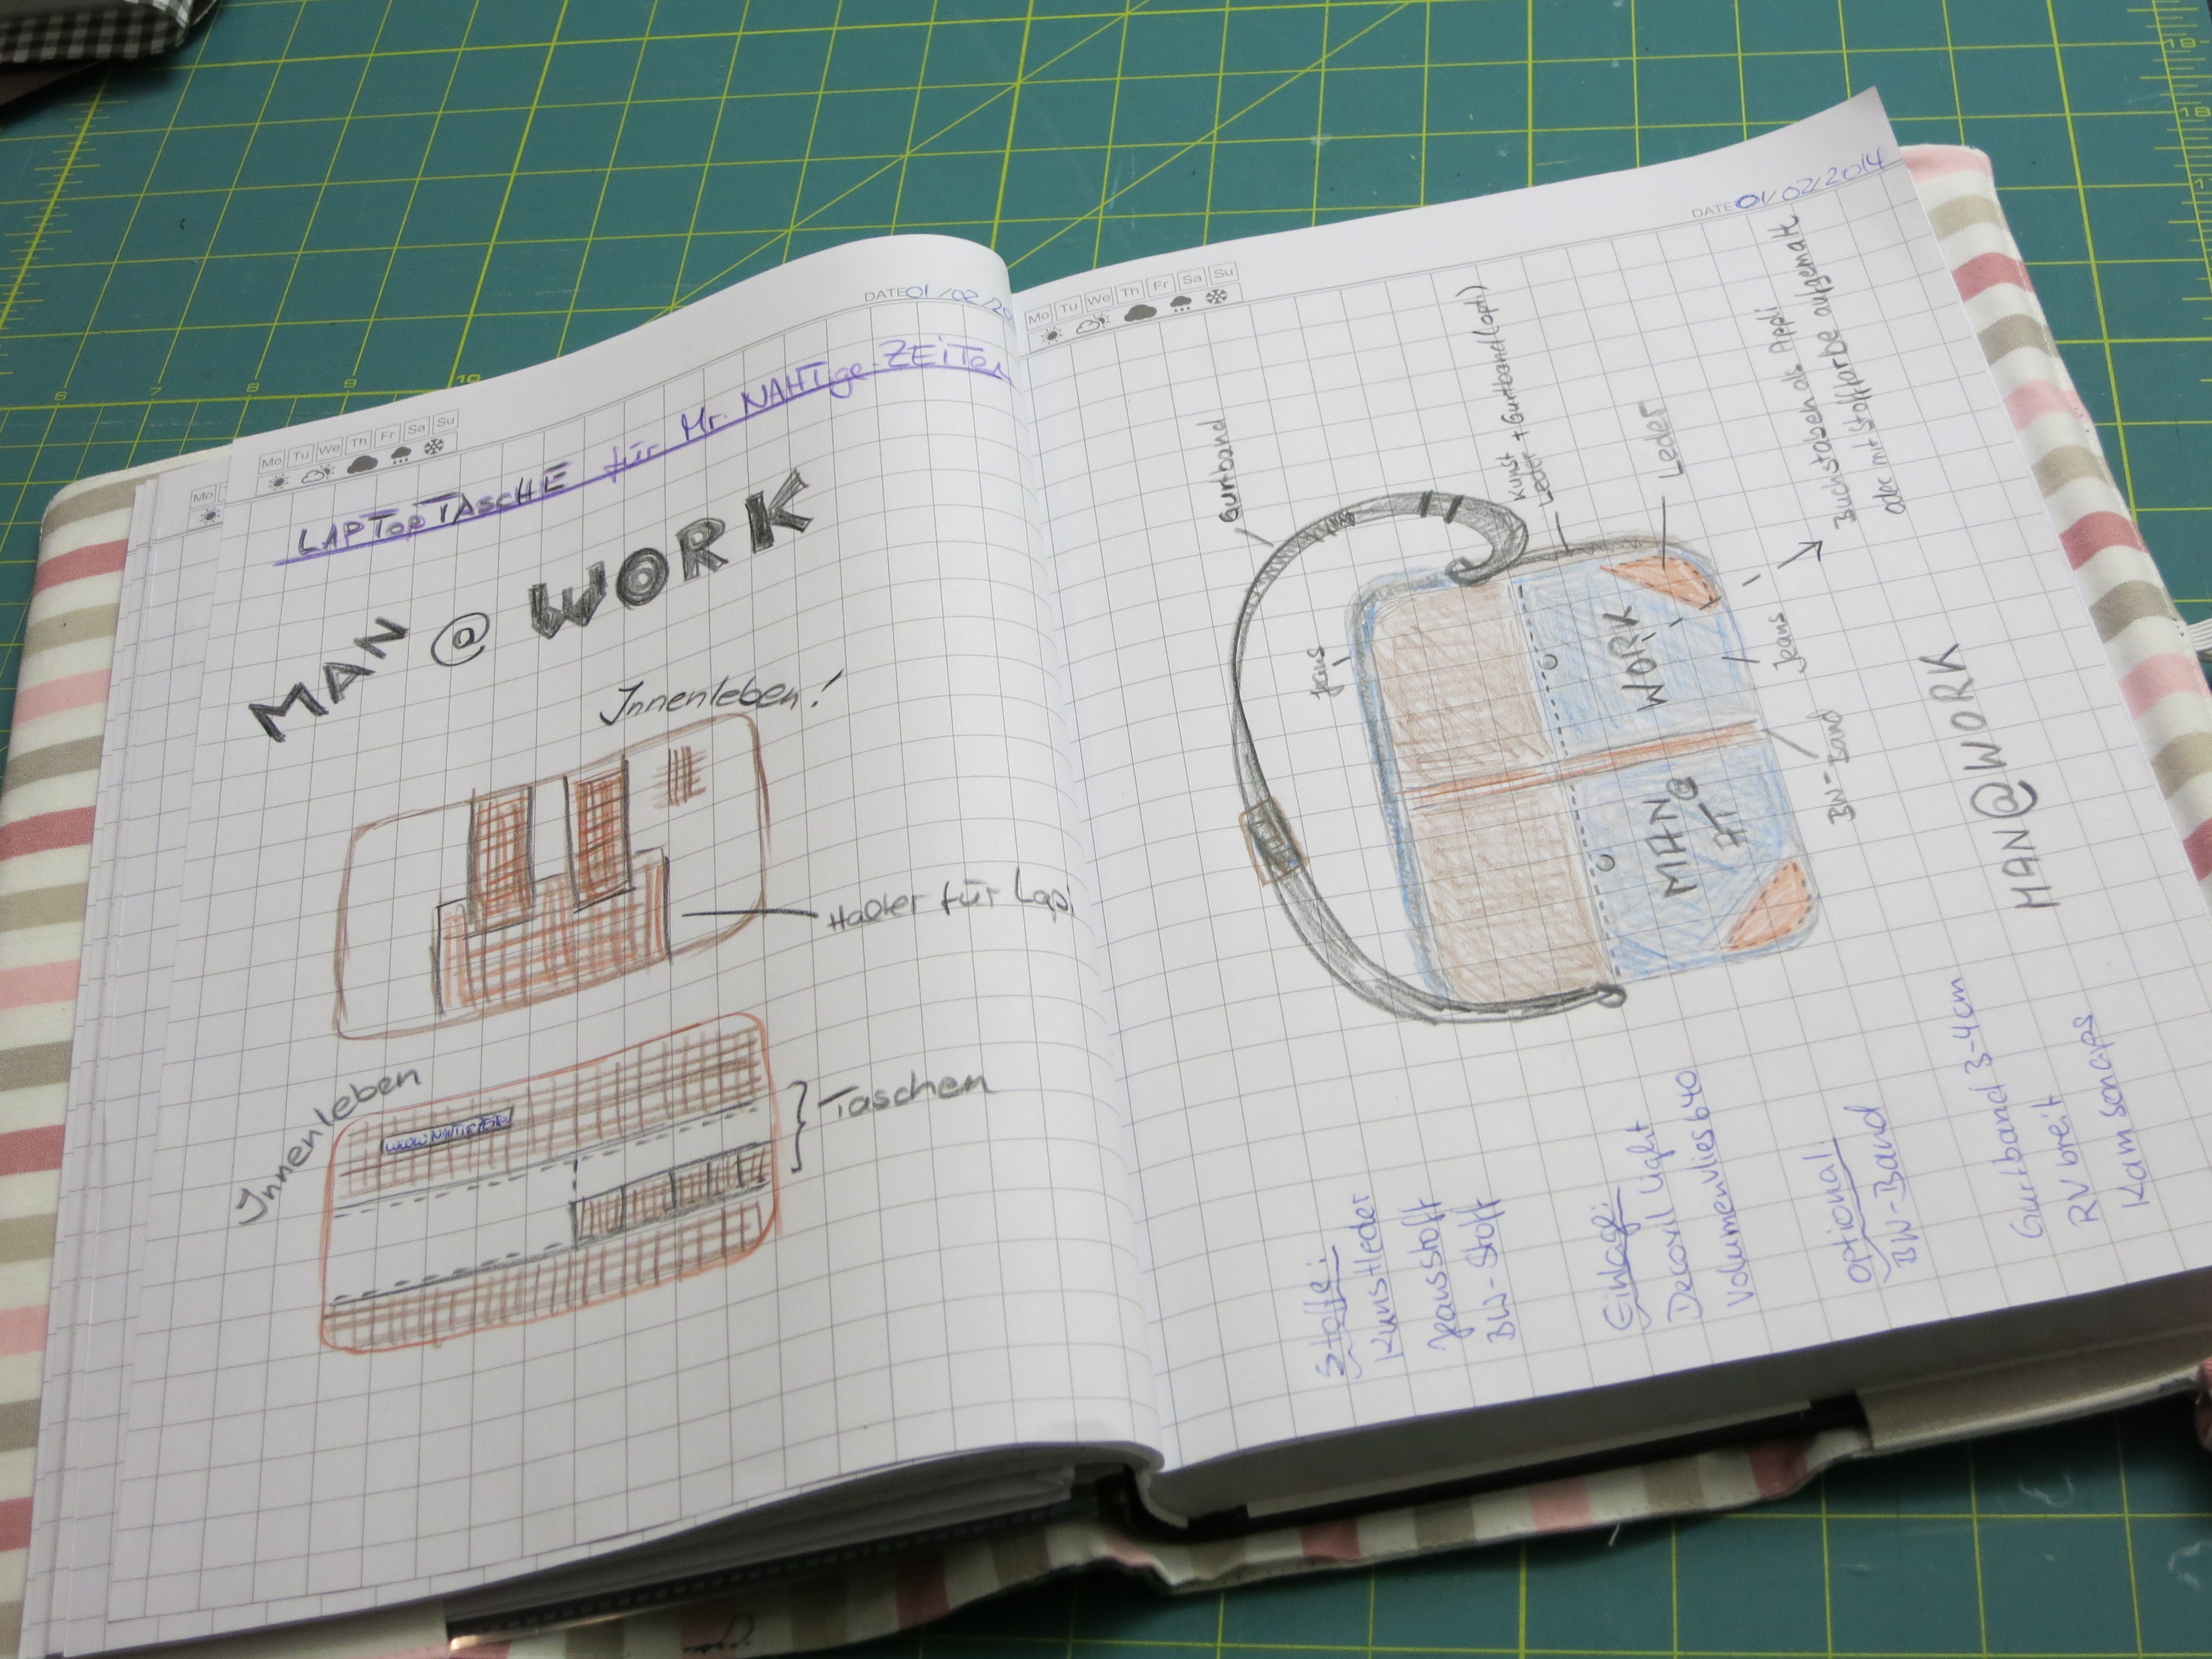 Mo Tu We Th Fr Sa Su
DATE 01/02/20
LAPTOPTASCHE für Mr. NAHTge-ZEiTen
MAN @ WORK
Innenleben!
Halter für Lapi
Innenleben
Taschen
Mo
Mo Tu We Th Fr Sa Su
DATE 01/02/2014
Gurtband
Kunst
Leder + Gurtband (opt.)
Leder
Buchstaben als Appli
oder mit Stofffarbe aufgemalt
Jeans
Jeans
BW-Band
MAN
@
AT
WORK
MAN@WORK
Stoffe:
Kunstleder
Jeansstoff
BW-Stoff
Einlage:
Decovil Light
Volumenvlies 640
Optional:
BW-Band
Gurtband 3-4cm
RV breit
Kam snaps
6
7
8
9
10
17
18
19